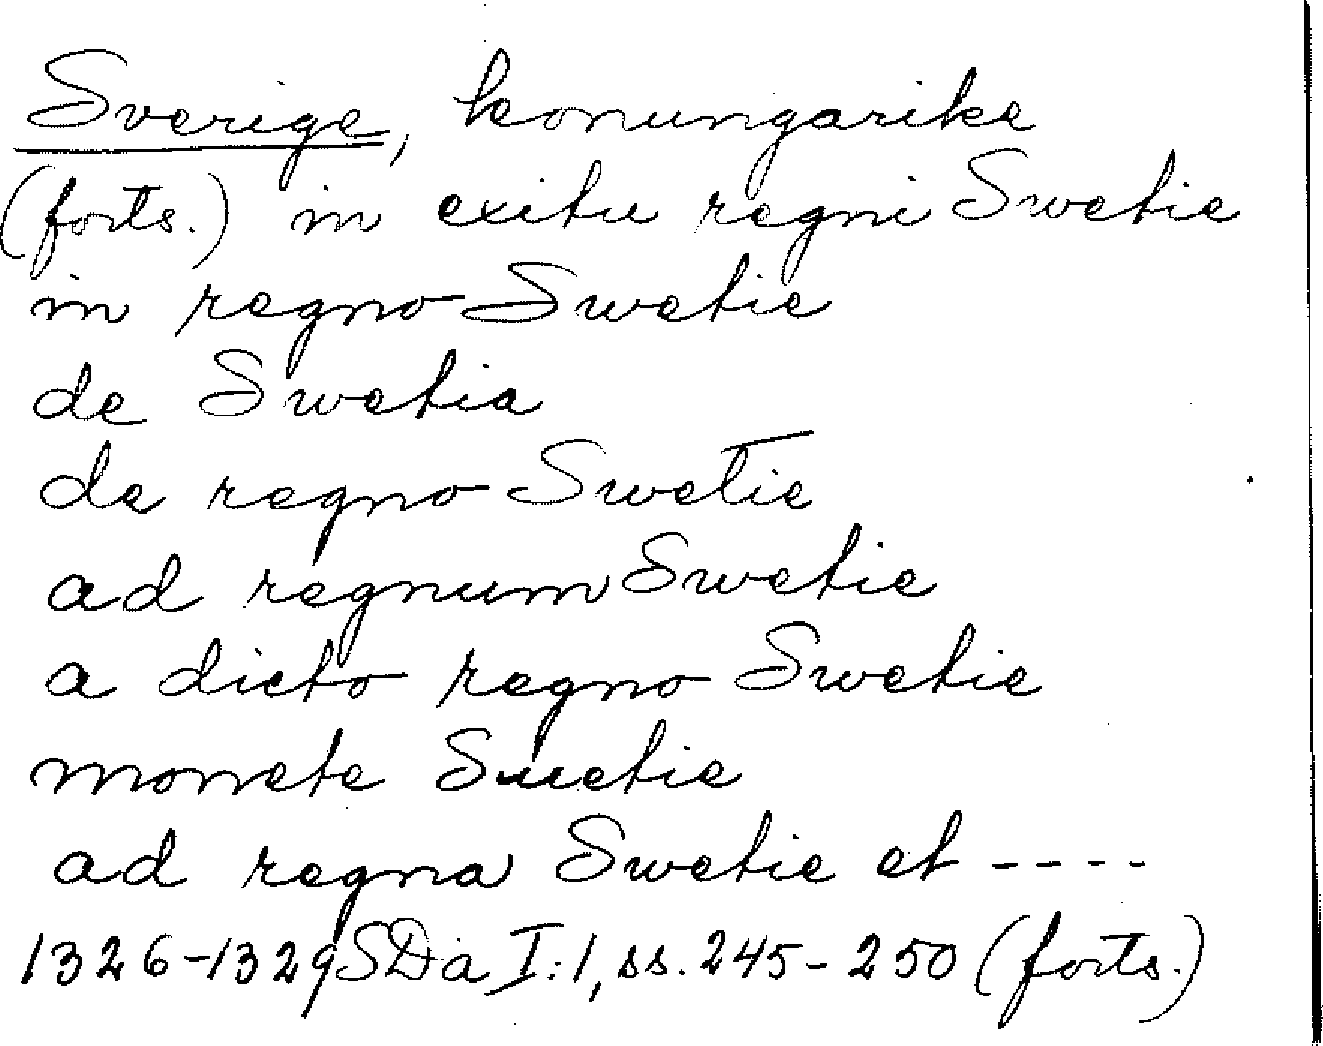 Sverige, konungarike
(forts.) in exitu regni Swetie
in regno Swetie
de Swetia
de regno Swetie
ad regnum Swetie
a dicto regno Swetie
monete Suetie
ad regna Swetie et ----
1326-1329 SDa I:1, ss. 245-250 (forts.)